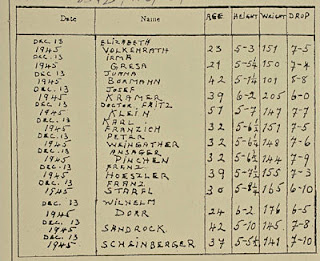 Date Name AGE HEIGHT WEIGHT DROP
DEC. 13 ELIZABETH
1945 VOLKENRATH 23 5-3 151 7-5
DEC. 13 IRMA
1945 GRESA 21 5-5½ 150 7-4
DEC. 13 JUANA
1945 BORMANN 42 5-1½ 101 8-5
DEC. 13 JOSEF
1945 KRAMER 39 6-2 205 6-0
DEC. 13 DOCTOR FRITZ
1945 KLEIN 57 5-7 147 7-7
DEC. 13 KARL
1945 FRANZICH 32 5-6½ 151 7-5
DEC. 13 PETER
1945 WEINGATHER 32 5-6½ 148 7-6
DEC. 13 ANSAGER
1945 PINCHEN 32 144 7-9
DEC. 13 FRENZ
1945 HOESZLER 39 155 7-3
DEC. 13 FRANZ
1945 STARFL 30 165 6-10
DEC. 13 WILHELM
1945 DORR 24 6-2 176 6-5
DEC. 13
1945 SANDROCK 42 5-10 145 7-8
DEC. 13
1945 SCHEINBERGER 37 141 7-10